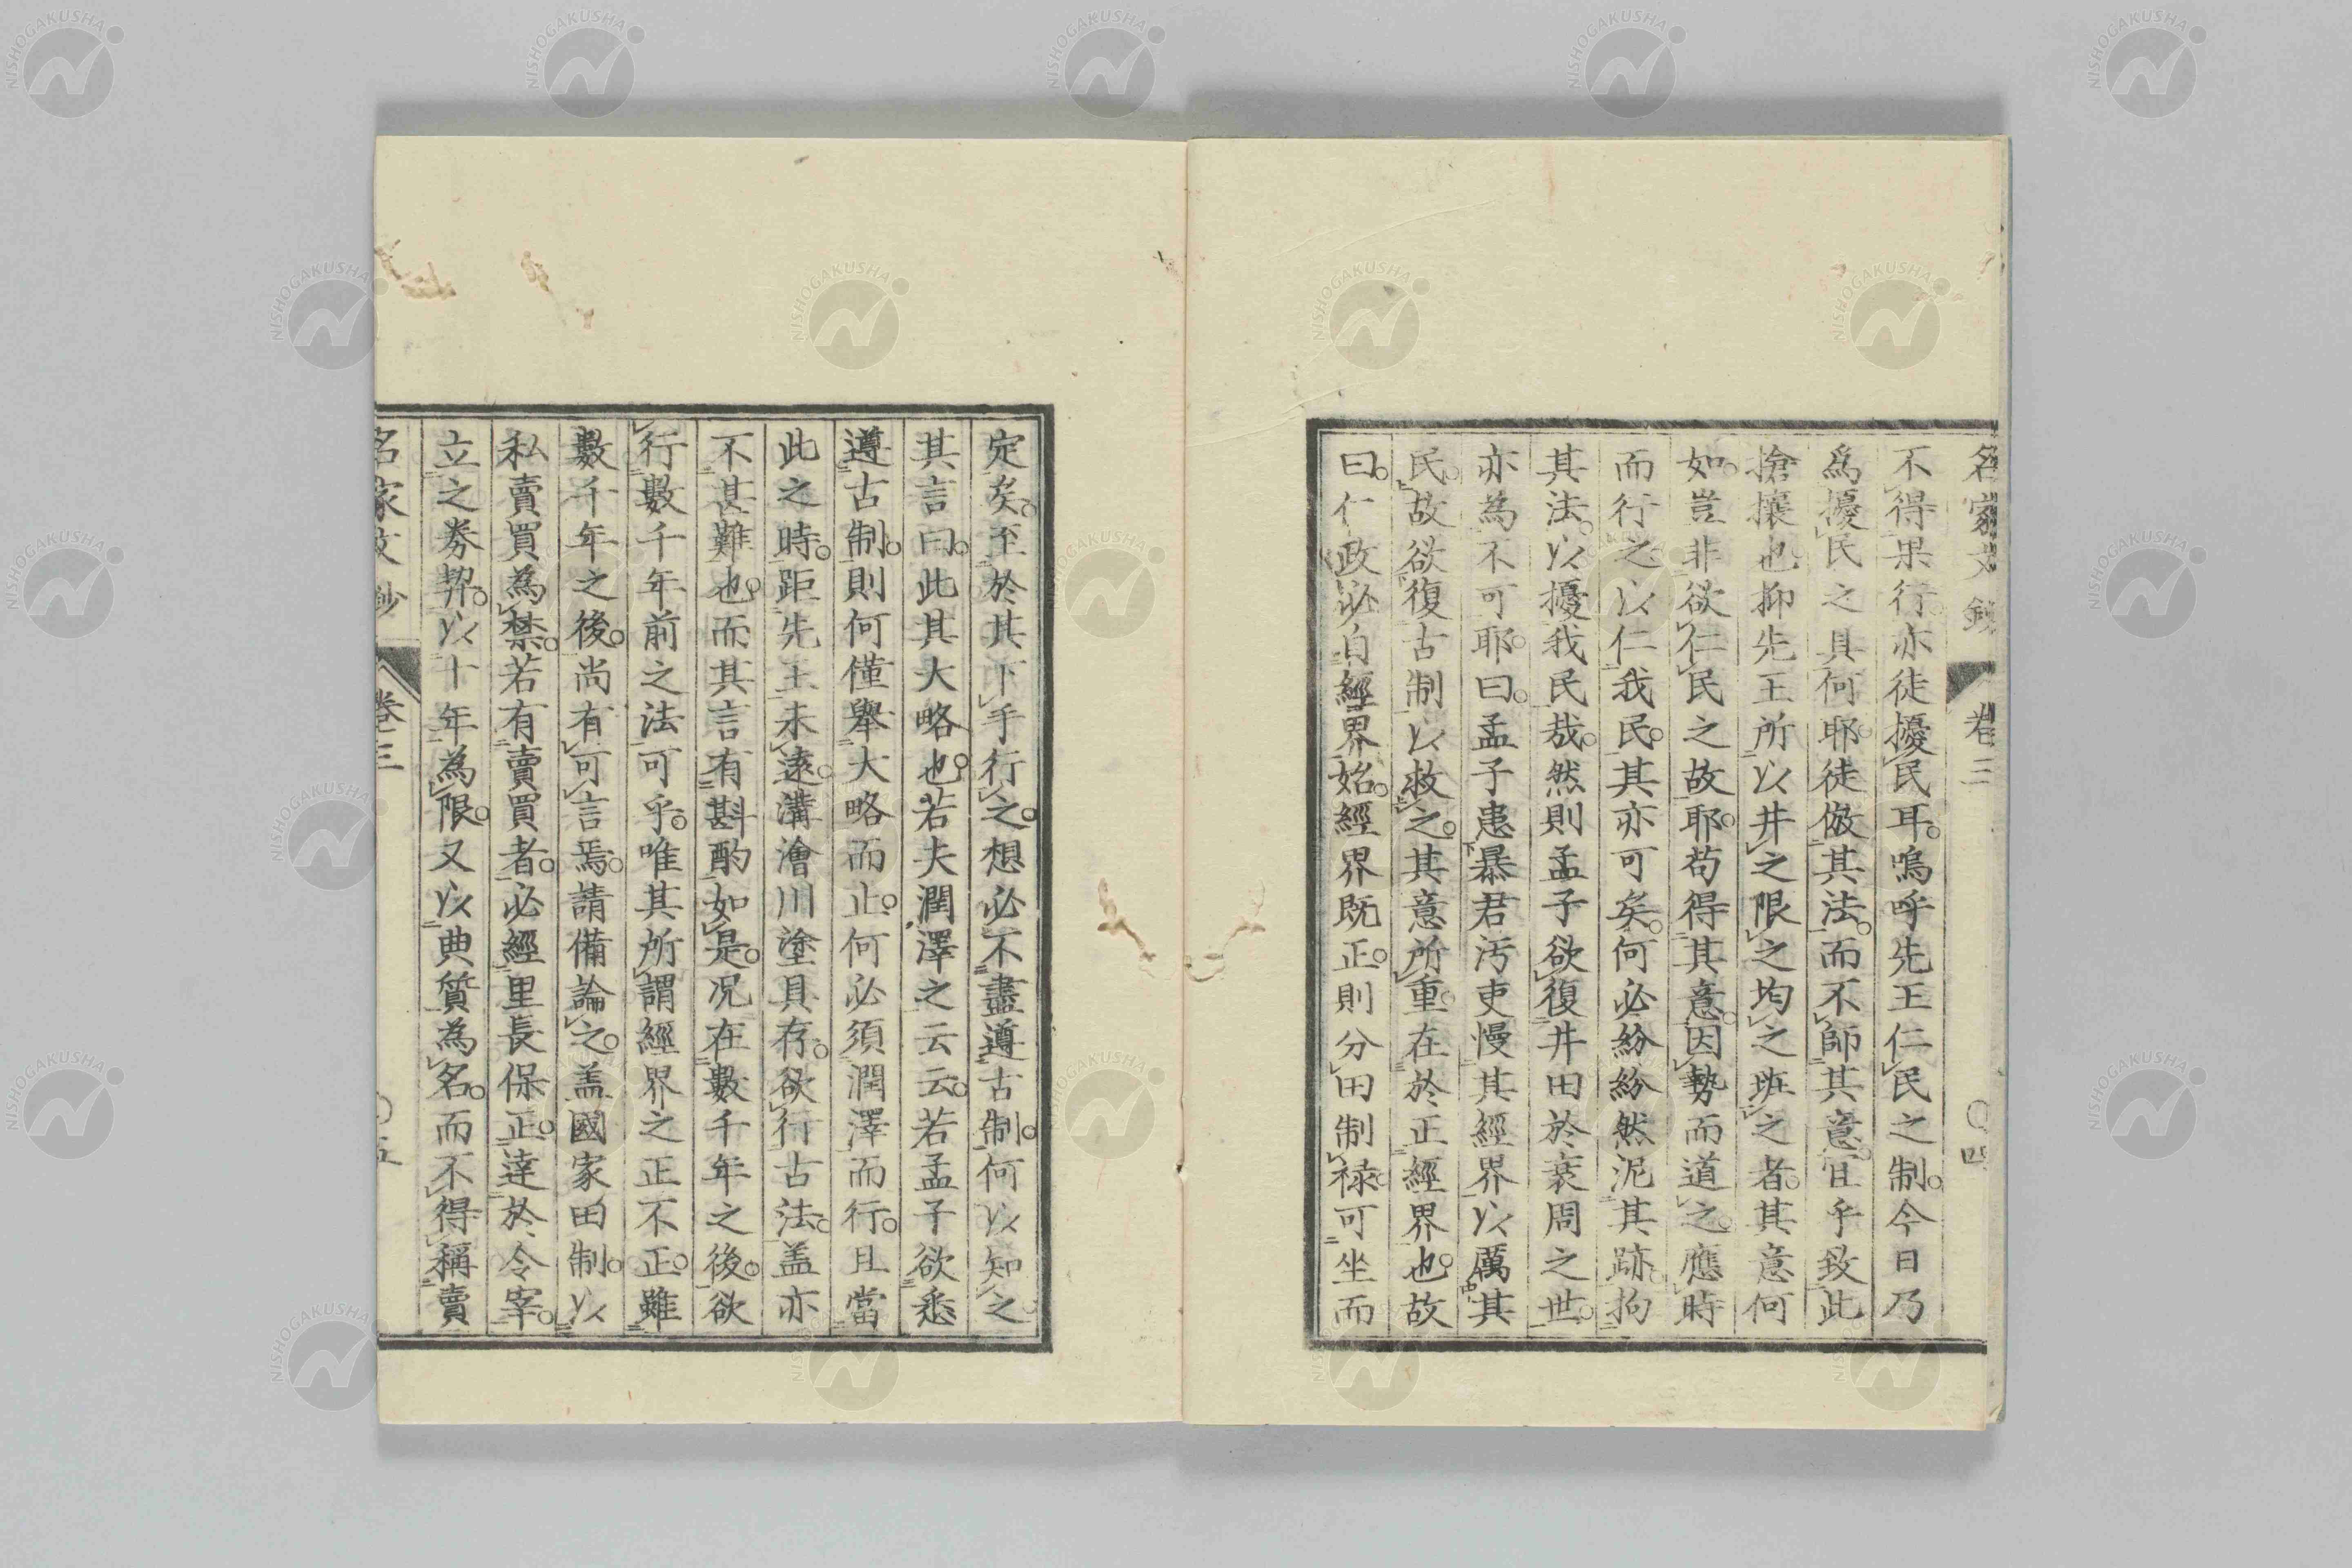 名家文鈔 卷三 〇四
不得果行亦徒擾民耳。嗚呼先王仁民之制。今日乃
爲擾民之具何耶。徒倣其法。而不師其意。宜乎致此
搶攘也抑先王所以井之限之均之班之者。其意何
如。豈非欲仁民之故耶。苟得其意。因勢而道之。應時
而行之以仁我民。其亦可矣。何必紛紛然泥其跡。拘
其法。以擾我民哉。然則孟子欲復井田於衰周之世。
亦為不可耶。曰。孟子患暴君汚吏慢其經界以厲其
民。故欲復古制以救之。其意所重。在於正經界也。故
曰。仁政必自經界始。經界既正。則分田制祿。可坐而
定矣。至於其下手行之。想必不盡遵古制。何以知之
其言曰。此其大略也。若夫潤澤之云云。若孟子欲悉
遵古制。則何僅舉大略而止。何必須潤澤而行。且當
此之時。距先王未遠。溝澮川塗具存。欲行古法。盖亦
不甚難也。而其言有斟酌如是。况在數千年之後。欲
行數千年前之法可乎。唯其所謂經界之正不正。雖
數千年之後。尚有可言焉。請備論之。盖國家田制。以
私賣買為禁。若有賣買者。必經里長保正。達於令宰。
立之券契。以十年為限。又以典質為名。而不得稱賣
名家文鈔 卷三 〇五
NISHOGAKUSHA